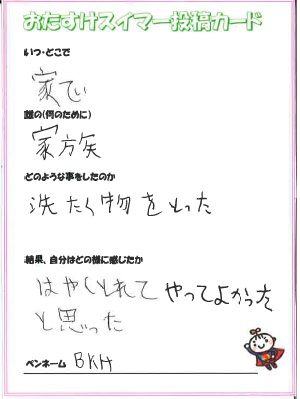 おたすけスイマー投稿カード
いつ・どこで
家でい
誰の(何のために)
家方矢
どのような事をしたのか
洗たく物をとった
結果、自分はどの様に感じたか
はやくとれてやってよかった
と思った
ペンネーム BKH